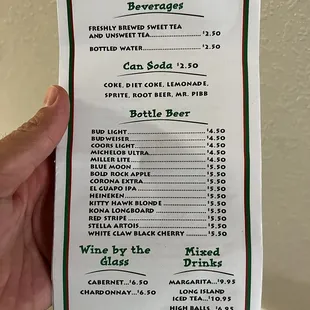 Beverages
FRESHLY BREWED SWEET TEA
AND UNSWEET TEA..................$2.50
BOTTLED WATER..................$2.50
Can Soda $2.50
COKE, DIET COKE, LEMONADE,
SPRITE, ROOT BEER, MR. PIBB
Bottle Beer
BUD LIGHT..................$4.50
BUDWEISER..................$4.50
COORS LIGHT..................$4.50
MICHELOB ULTRA..................$4.50
MILLER LITE..................$4.50
BLUE MOON..................$5.50
BOLD ROCK APPLE..................$5.50
CORONA EXTRA..................$5.50
EL GUAPO IPA..................$5.50
HEINEKEN..................$5.50
KITTY HAWK BLONDE..................$5.50
KONA LONGBOARD..................$5.50
RED STRIPE..................$5.50
STELLA ARTOIS..................$5.50
WHITE CLAW BLACK CHERRY..................$5.50
Wine by the
Glass
CABERNET...$6.50
CHARDONNAY...$6.50
Mixed
Drinks
MARGARITA...$9.95
LONG ISLAND
ICED TEA...$10.95
HIGH BALLS...$6.95